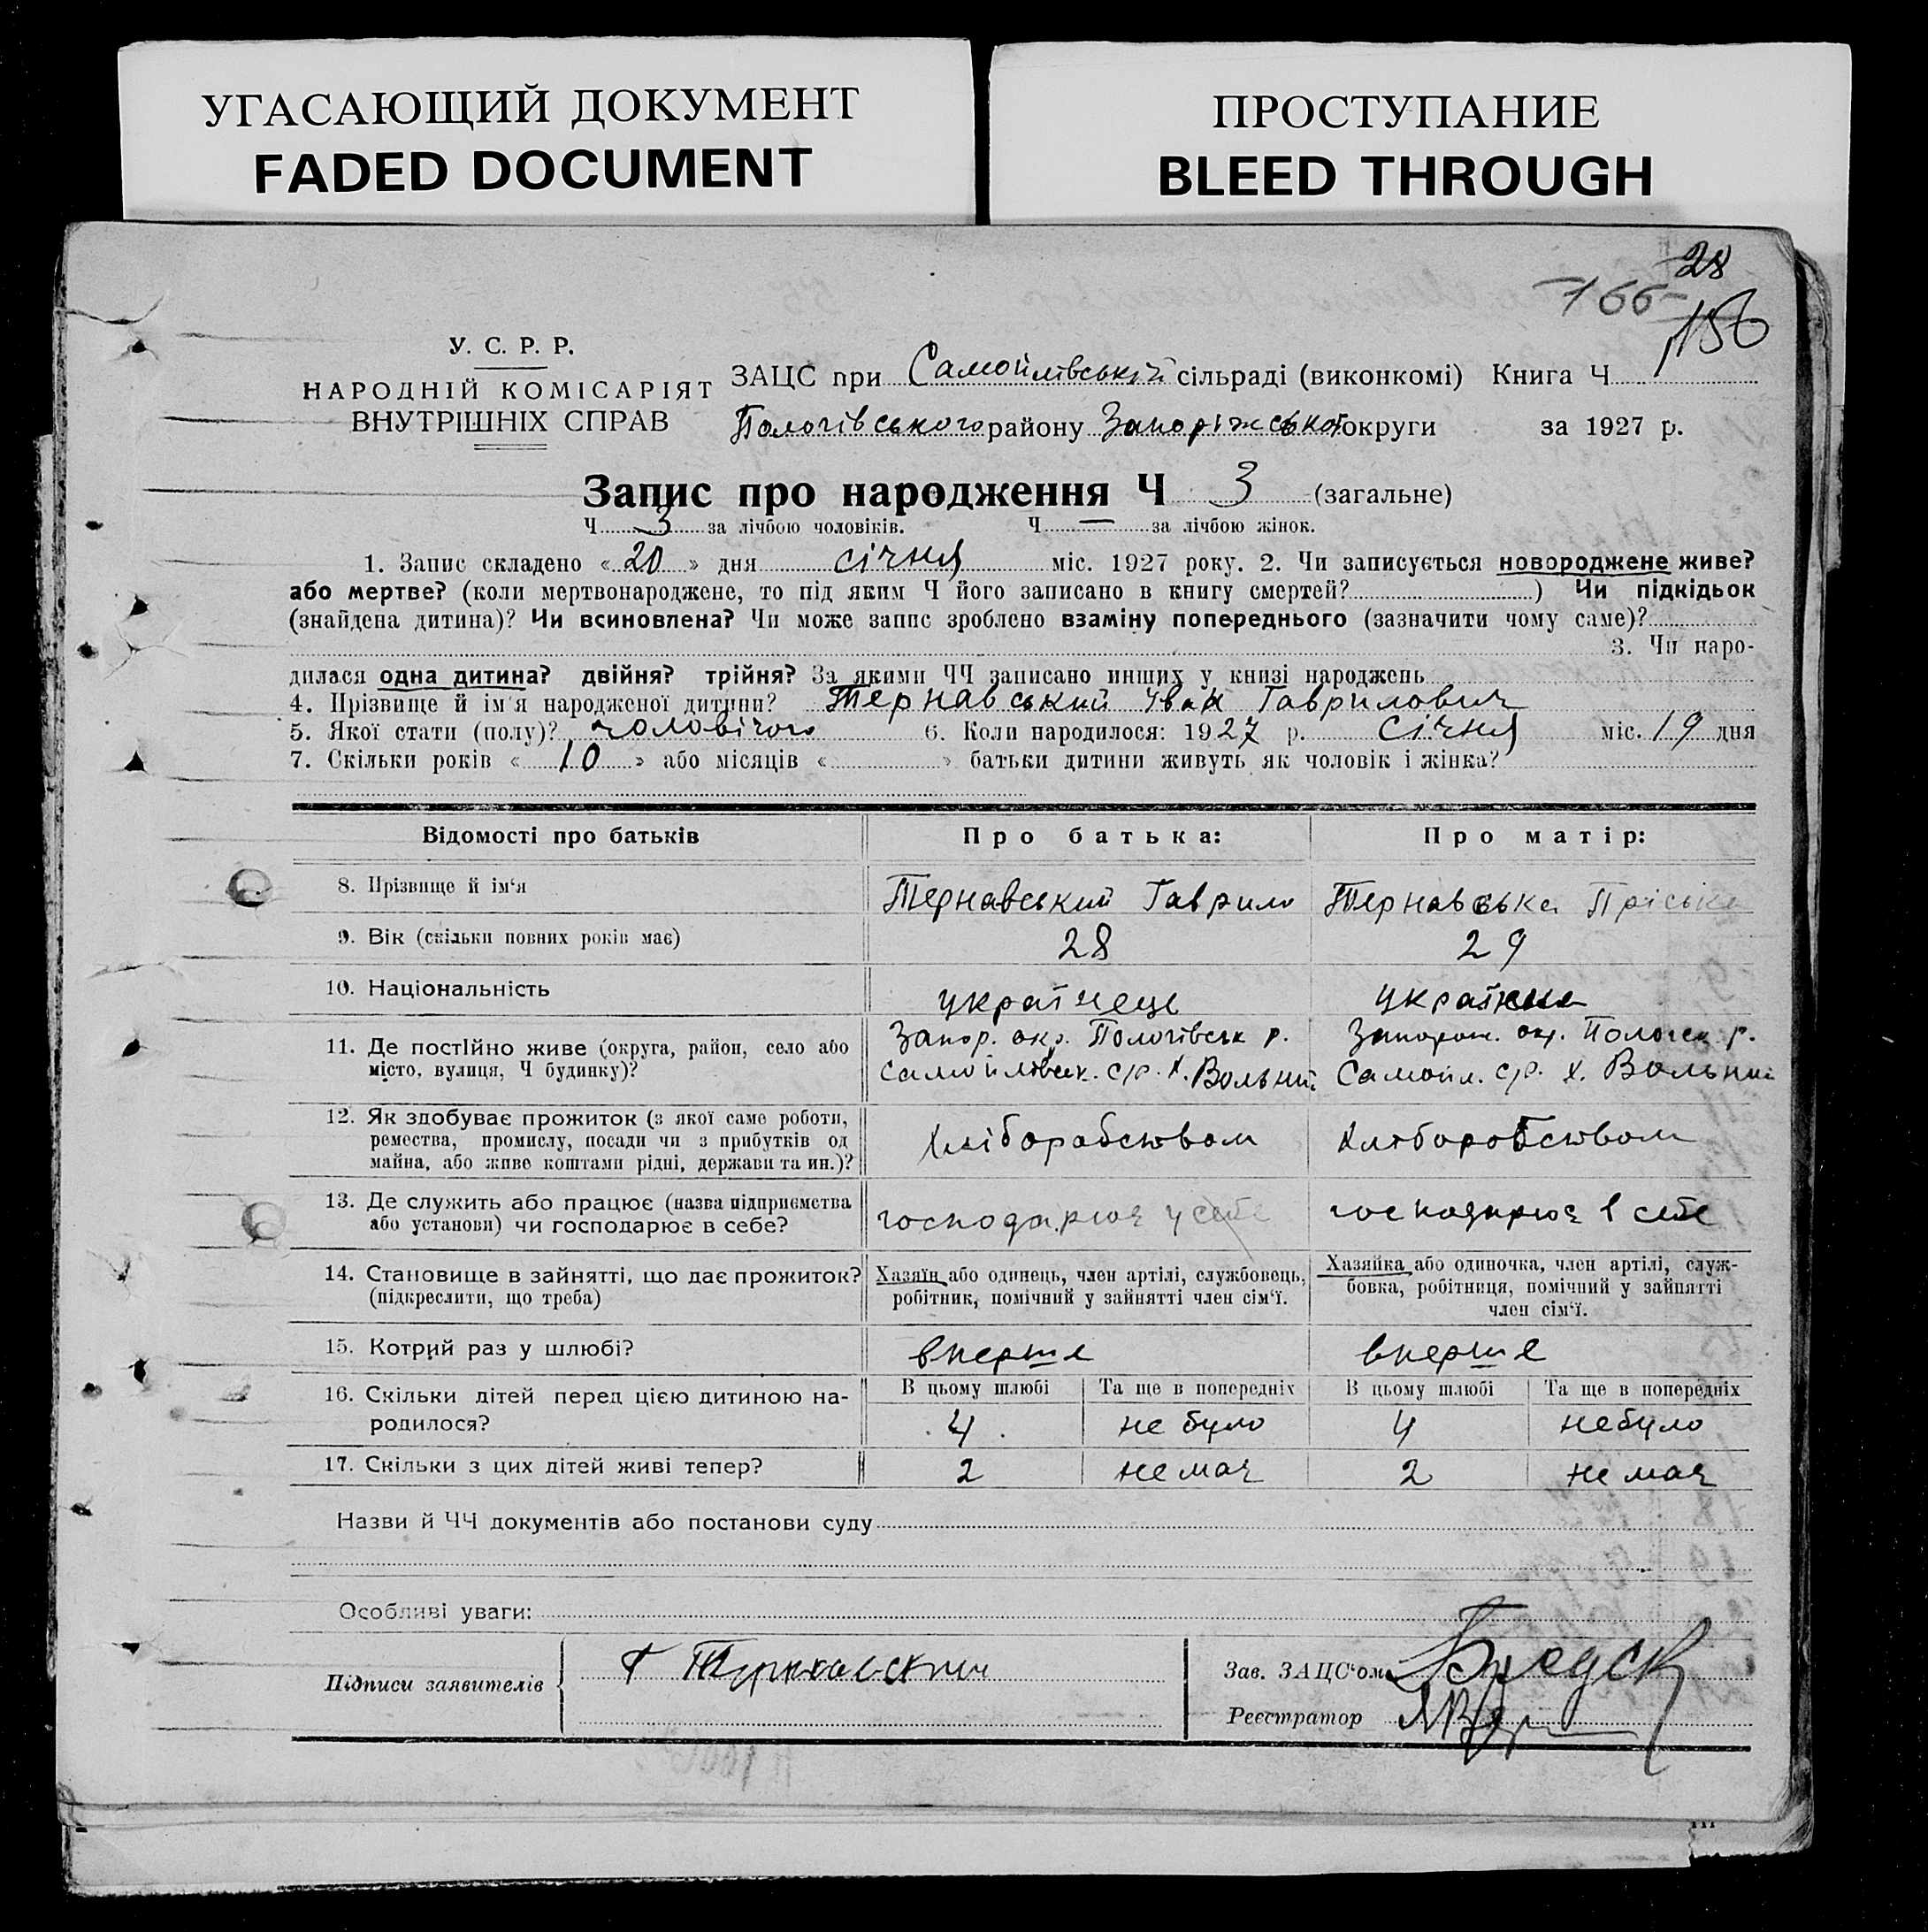 УГАСАЮЩИЙ ДОКУМЕНТ
FADED DOCUMENT
ПРОСТУПАНИЕ
BLEED THROUGH
28
166
156
У. С. Р. Р.
НАРОДНІЙ КОМІСАРІЯТ
ВНУТРІШНІХ СПРАВ
ЗАЦС при Самойлівській сільраді (виконкомі) Книга Ч
Пологівського району Запоріжської округи за 1927 р.
Запис про народження Ч 3 (загальне)
Ч 3 за лічбою чоловіків. Ч — за лічбою жінок.
1. Запис складено «20» дня січня міс. 1927 року. 2. Чи записується новороджене живе?
або мертве? (коли мертвонароджене, то під яким Ч його записано в книгу смертей? ) Чи підкідьок
(знайдена дитина)? Чи всиновлена? Чи може запис зроблено взаміну попереднього (зазначити чому саме)?
3. Чи наро-
дилася одна дитина? двійня? трійня? За якими ЧЧ записано инших у книзі народжень
4. Прізвище й ім'я народженої дитини? Тернавський Іван Гаврилович
5. Якої стати (полу)? чоловічого 6. Коли народилося: 1927 р. січня міс. 19 дня
7. Скільки років «10» або місяців « » батьки дитини живуть як чоловік і жінка?
Відомості про батьків Про батька: Про матір:
8. Прізвище й ім'я Тернавський Гаврило Тернавська Пріська
9. Вік (скільки повних років має) 28 29
10. Національність українець українка
11. Де постійно живе (округа, район, село або Запор. окр. Пологівськ р. Запорож. окр. Пологск р.
місто, вулиця, Ч будинку)? Самойлівськ. с/р. х. Вольний Самойл. с/р. х. Вольний
12. Як здобуває прожиток (з якої саме роботи,
ремества, промислу, посади чи з прибутків од хліборобством хліборобством
майна, або живе коштами рідні, держави та ин.)?
13. Де служить або працює (назва підприємства господарює у себе господарює в себе
або установи) чи господарює в себе?
14. Становище в зайнятті, що дає прожиток? Хазяїн або одинець, член артілі, службовець, Хазяйка або одиночка, член артілі, служ-
(підкреслити, що треба) робітник, помічний у зайнятті член сім'ї. бовка, робітниця, помічний у зайнятті
член сім'ї.
15. Котрий раз у шлюбі? вперше вперше
16. Скільки дітей перед цією дитиною на- В цьому шлюбі Та ще в попередніх В цьому шлюбі Та ще в попередніх
родилося? 4 не було 4 не було
17. Скільки з цих дітей живі тепер? 2 не має 2 не має
Назви й ЧЧ документів або постанови суду
Особливі уваги:
Підписи заявителів Г Тернавский
Зав. ЗАЦС'ом
Реєстратор